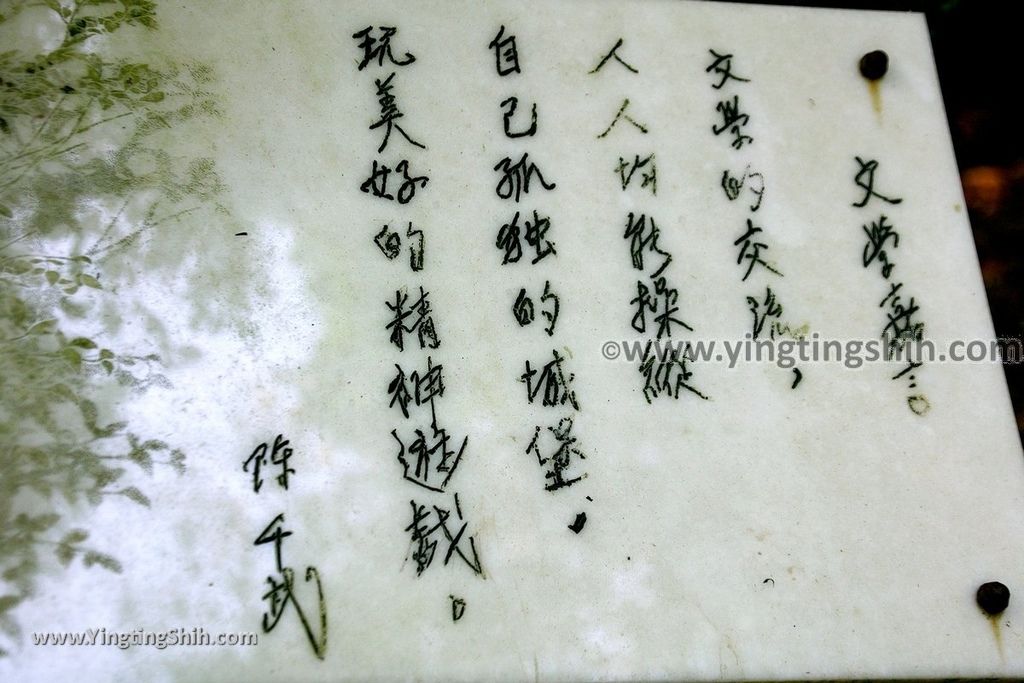 文學嘉三〇
文學的交流,
人人均能操縱
自己孤独的城堡,
玩美好的精神遊戲。
陳千武
©www.yingtingshih.com
www.YingtingShih.com